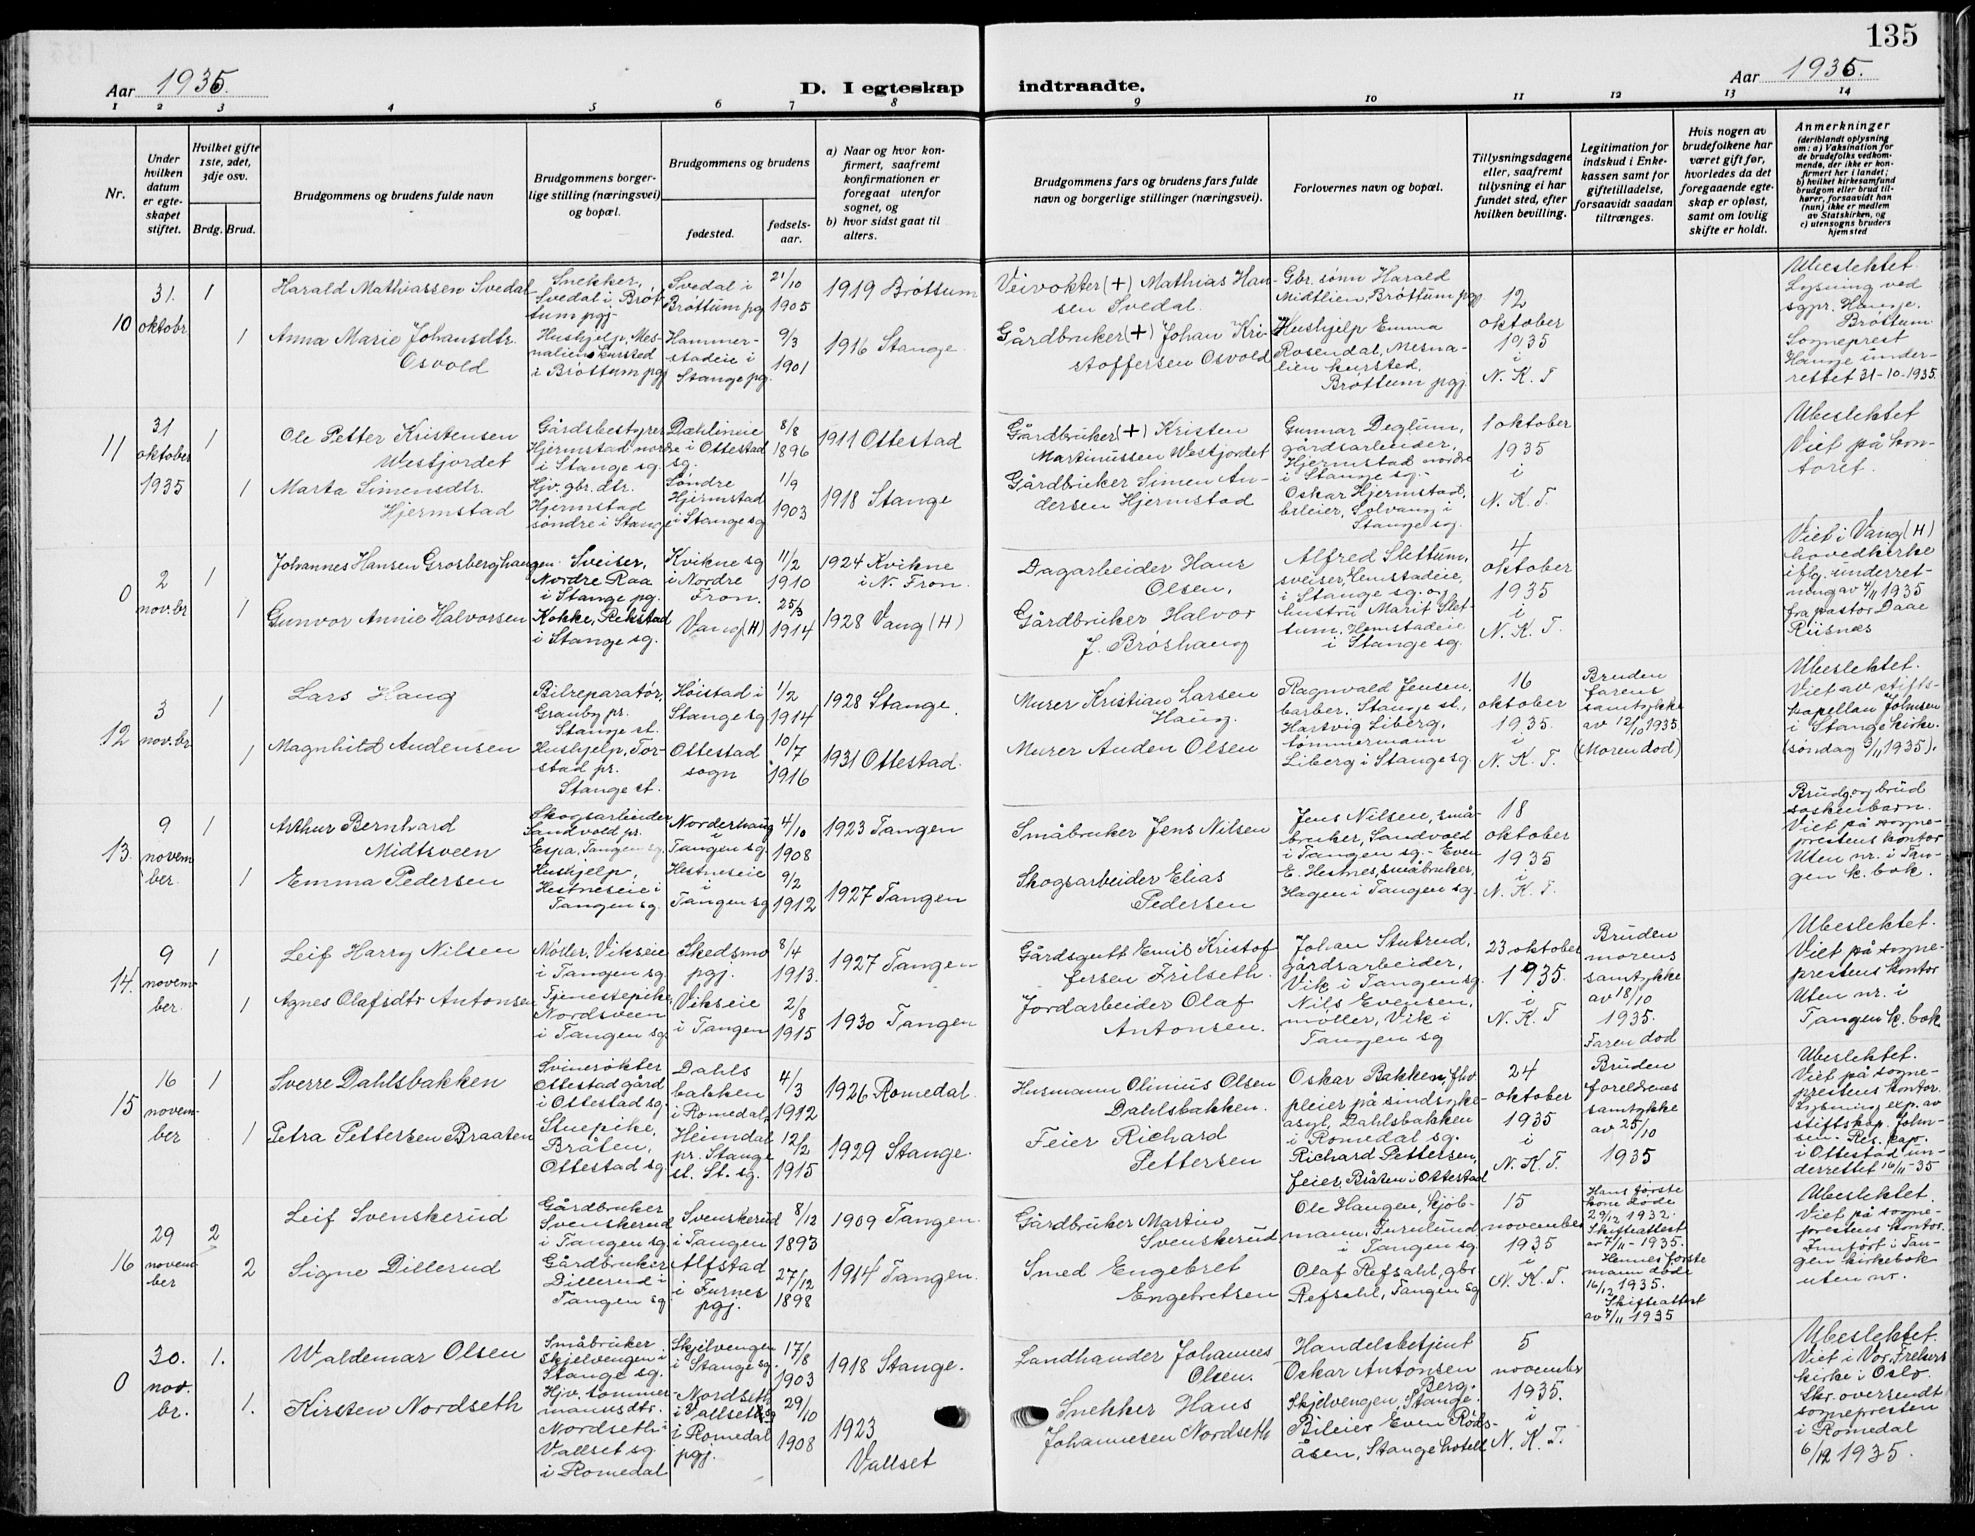 135
Aar 1935.
D. I egteskap indtraadte.
Aar 1935.
1 2 3 4 5 6 7 8 9 10 11 12 13 14
Nr.
Under hvilken datum er egteskapet stiftet.
Hvilket gifte 1ste, 2det, 3dje osv.
Brdg. Brud.
Brudgommens og brudens fulde navn
Brudgommens borgerlige stilling (næringsvei) og bopæl.
Brudgommens og brudens
fødested.
fødselsaar.
a) Naar og hvor konfirmert, saafremt konfirmationen er foregaat utenfor sognet, og
b) hvor sidst gaat til alters.
Brudgommens fars og brudens fars fulde navn og borgerlige stillinger (næringsvei).
Forlovernes navn og bopæl.
Tillysningsdagene eller, saafremt tillysning ei har fundet sted, efter hvilken bevilling.
Legitimation for indskud i Enkekassen samt for giftetilladelse, forsaavidt saadan tiltrænges.
Hvis nogen av brudefolkene har været gift før, hvorledes da det foregaaende egteskap er opløst, samt om lovlig skifte er holdt.
Anmerkninger
(deriblandt oplysning om: a) Vaksination for de brudefolks vedkommende, der ikke er konfirmert her i landet; b) hvilket kirkesamfund brudgom eller brud tilhører, forsaavidt han (hun) ikke er medlem av Statskirken, og c) utensogns bruders hjemsted
10
31. oktobr
1
Harald Mathiassen Svedal
Snekker, Svedal i Brøttum pgj.
Svedal i Brøttum pgj
21/10 1905
1919 Brøttum
Veivokter (+) Mathias Hansen Svedal.
Gbr. sønn Harald Midtlien, Brøttum pgj
12 oktober 1935 i N. K. T
Ubeslektet. Lysning ved sgpr. Hauge, Brøttum. Sogneprest Hauge underrettet 31-10-1935
1
Anna Marie Johansdtr. Osvold
Hushjelp, Mesnalien kursted i Brøttum pgj
Hammerstadeie i Stange pg.
9/3 1901
1916 Stange.
Gårdbruker (+) Johan Kristoffersen Osvold
Hushjelp Emma Rosendal, Mesnalien kursted, Brøttum pgj.
11
31 oktober 1935
1
Ole Petter Kristensen Westjordet
Gårdsbestyrer Hjermstad nordre i Stange sg.
Dæhlineie i Ottestad sg.
8/8 1896
1911 Ottestad
Gårdbruker (+) Kristen Martinussen Westjordet
Gunnar Deglum, gårdsarbeider, Hjermstad nordre i Stange sg.
1 oktober 1935 i N. K. T.
Ubeslektet Viet på kontoret.
1
Marta Simensdtr. Hjermstad
Hjv. gbr. dtr. Hjermstad søndre i Stange
Søndre Hjermstad i Stange sg
1/9 1903
1918 Stange
Gårdbruker Simen Andersen Hjermstad
Oskar Hjermstad, brleier, Solvang i Stange sg.
0
2 nov.br
1
Johannes Hansen Grosberghaugen
Sveiser, Nordre Raa i Stange pg.
Kvikne sg i Nordre Fron.
11/2 1910
1924 Kvikne i N. Fron.
Dagarbeider Hans Olsen,
Alfred Slettum, sveiser, Hemstadeie, i Stange sg. og hustru Marit Slettum, Hemstadeie i Stange sg.
4 oktober 1935 i N. K. T.
Viet i Vang (H) hovedkirke iflg. underretning av 4/11 1935 fra pastor Daae Riisnæs
1
Gunvor Annie Halvorsen
Kokke, Rekstad i Stange sg.
Vang (H)
25/3 1914
1928 Vang (H)
Gårdbruker Halvor J. Brøshaug
12
3 nov.br
1
Lars Haug
Bilreparatør, Granby pr. Stange st.
Høistad i Stange sg
1/2 1914
1928 Stange.
Murer Kristian Larsen Haug.
Ragnvald Jensen, barber, Stange st., Hartvig Liberg, tømmermann Liberg i Stange sg
16 oktober 1935. i N. K. T.
Bruden farens samtykke av 12/10 1935 (Moren død)
Ubeslektet. Viet av stiftskapellan Johnsen i Stange kirke. (søndag 3/11 1935).
1
Magnhild Audensen
Hushjelp, Torstad pr. Stange st.
Ottestad sogn
10/7 1916
1931 Ottestad.
Murer Auden Olsen
13.
9 november.
1
Arthur Bernhard Midtsveen
Skogsarbeider Sandvold pr. Espa, Tangen sg.
Norderhaug i Tangen sg.
4/10 1908
1923 Tangen
Småbruker Jens Nilsen
Jens Nilsen, småbruker, Sandvold i Tangen sg. - Even E. Hestnes, småbruker, Hagen i Tangen sg.
18 oktober 1935 i N. K. T.
Brudg. og brud søskenbarn. Viet på sogneprestens kontor Uten nr. i Tangen k. bok.
1
Emma Pedersen
Hushjelp, Hestneseie i Tangen sg.
Hestneseie i Tangen sg
9/2 1912
1927 Tangen
Skogsarbeider Elias Pedersen
14.
9 november.
1
Leif Harry Nilsen
Møller, Vikseie i Tangen sg.
Skedsmo pgj.
8/4 1913.
1927 Tangen
Gårdsgutt Emil Kristofersen Frilseth.
Johan Stubrud, gårdsarbeider, Vik i Tangen sg.
23 oktober 1935. i N. K. T
Bruden morens samtykke av 18/10 1935. Faren død
Ubeslektet. Viet på sogneprestens kontor Uten nr. i Tangen k. bok
1
Agnes Olafsdtr Antonsen
Tjenestepike, Nordsveen i Tangen sg
Vikseie i Tangen
2/8 1915
1930 Tangen
Jordarbeider Olaf Antonsen.
Nils Evensen, møller, Vik i Tangen sg
15
16 november
1
Sverre Dahlsbakken
Svinerøkter Ottestad gård i Ottestad sg.
Dahlsbakken i Romedal
4/3 1912
1926 Romedal.
Husmann Olinius Olsen Dahlsbakken.
Oskar Bakken, fhv. pleier på sindsykeasyl, Dahlsbakken i Romedal sg.
24 oktober 1935 i N. K. T.
Bruden foreldrenes samtykke av 25/10 1935
Ubeslektet. Viet på sogneprestens kontor. Lysning exp. av stiftskap. Johnsen. Res. kap. i Ottestad underrettet 16/11-35
1
Petra Pettersen Braaten
Stuepike, Bråten, Ottestad sg
Heimdal pr. Stange st. St. sg.
12/2 1915
1929 Stange.
Feier Richard Pettersen
Richard Pettersen, feier, Bråten i Ottestad
16
29 november
2
Leif Svenskerud
Gårdbruker Svenskerud i Tangen sg.
Svenskerud i Tangen
8/12 1893
1909 Tangen.
Gårdbruker Martin Svenskerud
Ole Haugen, kjøbmann, Furulund i Tangen sg.
15 november 1935 i N. K. T.
Hans første kone døde 29/12 1932. Skifteattest av 7/11-1935. Hennes første mann døde 16/12 1935. Skifteattest av 7/11 1935
Ubeslektet. Viet på sogneprestens kontor. Innført i Tangen kirkebok uten nr.
2
Signe Dillerud
Gårdbruker Dillerud i Tangen sg
Alfstad i Furnes pgj.
27/12 1898
1914 Tangen.
Smed Engebret Engebretsen
Olaf Refsahl, gbr Refsahl, Tangen sg
0
30. nov.br.
1.
Waldemar Olsen
Småbruker Skjelvengen i Stange sg.
Skjelvengen i Stange sg.
17/8 1903
1918 Stange.
Landhandler Johannes Olsen.
Handelsbetjent Oskar Antonsen Berg. Skjelvengen, Stange.
5 november 1935. i N. K. T.
Ubeslektet. Viet i Vor Frelsers kirke i Oslo. Skr. oversendt sognepresten i Romedal 6/12 1935.
1.
Kirsten Nordseth
Hjv. tømmermannsdtr. Nordseth i Vallset sg. i Romedal
Nordseth i Vallset sg i Romedal pgj.
29/10 1908
1923 Vallset
Snekker Hans Johannesen Nordseth
Bileier Even Rødsåsen, Stange hotell